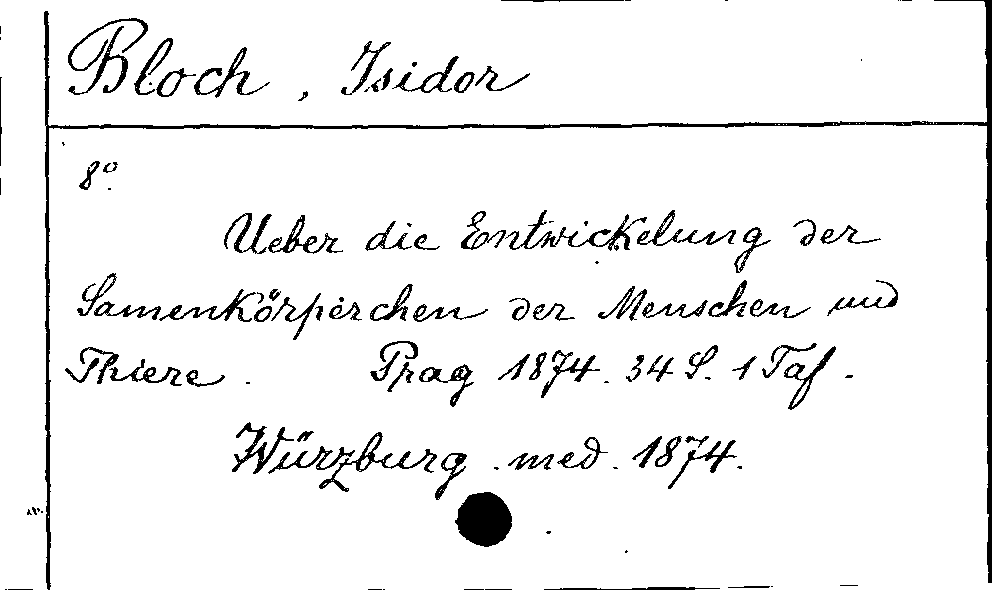 Bloch, Isidor
8°.
Ueber die Entwickelung der
Samenkörperchen der Menschen und
Thiere. Prag 1874. 34 S. 1 Taf.
Würzburg. med. 1874.